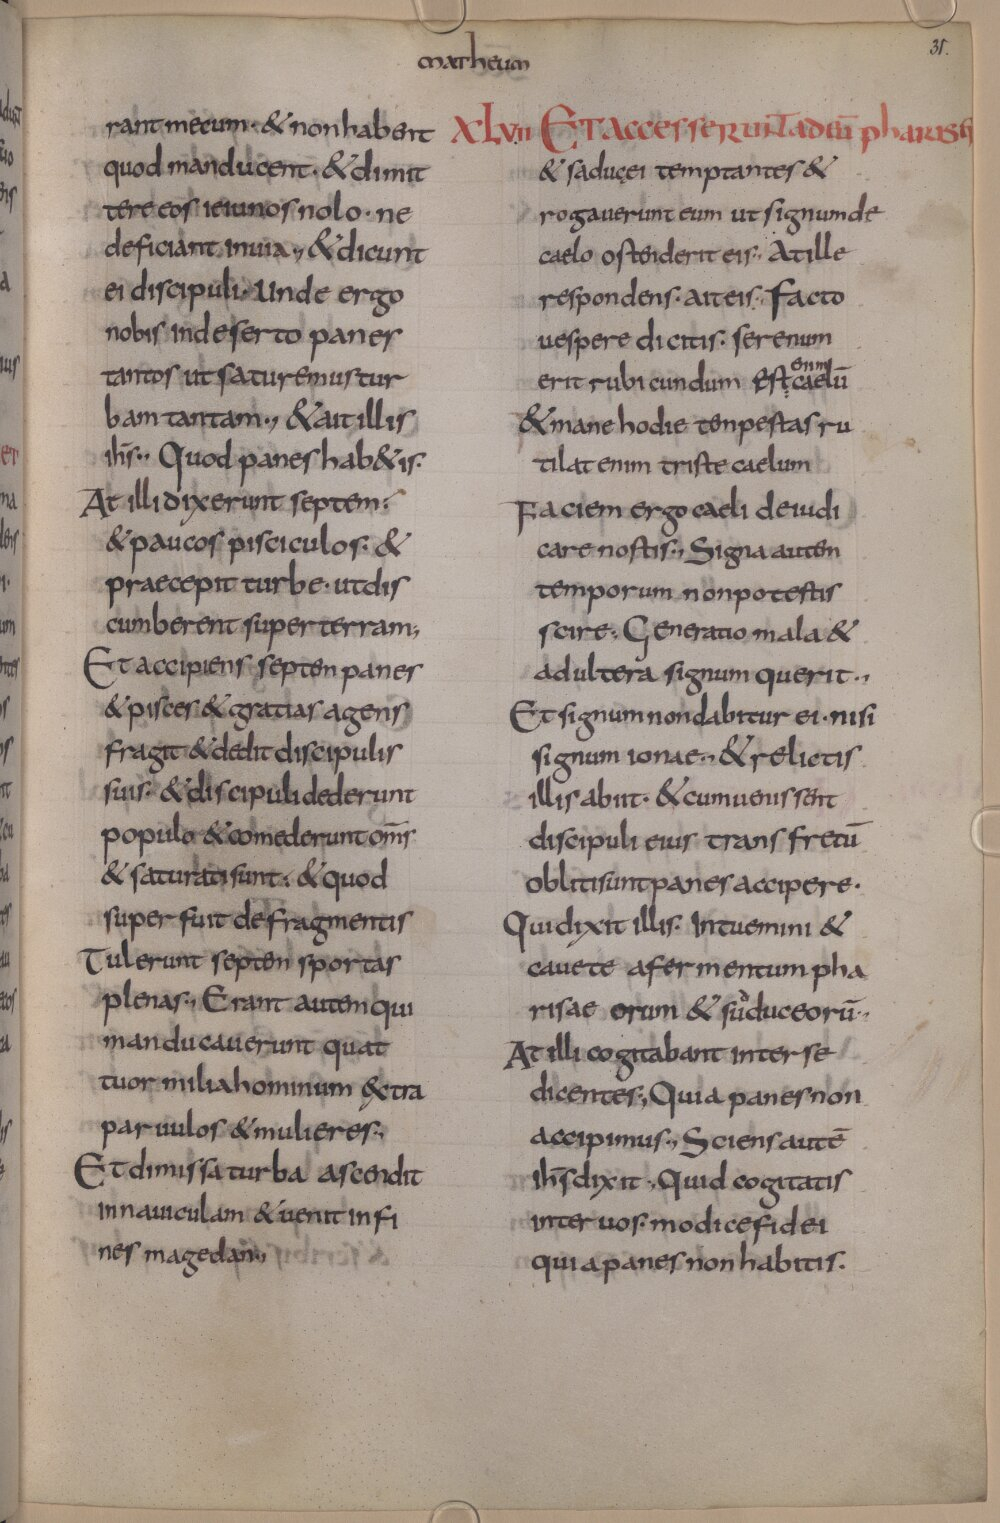 matheum
31.
rant mecum · & non habent
quod manducent · & dimit
tere eos ieiunos nolo · ne
deficiant in uia ., & dicunt
ei discipuli · Unde ergo
nobis in deserto panes
tantos ut saturemus tur
bam tantam ., & ait illis
ihs̄ ., Quod panes hab&is ·
At illi dixerunt septem ·
& paucos pisciculos · &
praecepit turbe · ut dis
cumberent super terram ,
Et accipiens septem panes
& pisces & gratias agens
fragit & dedit discipulis
suis · & discipuli dederunt
populo & comederunt om̄s
& saturati sunt · & quod
superfuit de fragmentis
Tulerunt septem sportas
plenas ., Erant autem qui
manducauerunt quat
tuor milia hominum & xtra
paruulos & mulieres .,
Et dimissa turba ascendit
in nauiculam & uenit in fi
nes magedan .,
XLVII Et accesserunt ad eum̄ pharisęi
& saducęi temptantes &
rogauerunt eum ut signum de
caelo ostenderit eis ., At ille
respondens · ait eis · Facto
uespere dicitis · serenum
enim
erit rubicundum est caelū
& mane hodie tempestas ru
tilat enim triste caelum
Faciem ergo caeli deiudi
care nostis ., Signa autem
temporum non potestis
scire · Generatio mala &
adultera signum querit .,
Et signum non dabitur ei · nisi
signum ionae ., & relictis
illis abiit · & cum uenissent
discipuli eius trans fretū
obliti sunt panes accipere ·
Qui dixit illis · Intuemini &
cauete a fermentum pha
risae orum & saduceorū .,
At illi cogitabant inter se
dicentes ., Quia panes non
accipimus ., Sciens autē
ihs̄ dixit , Quid cogitatis
inter uos · modice fidei
quia panes non habitis ·